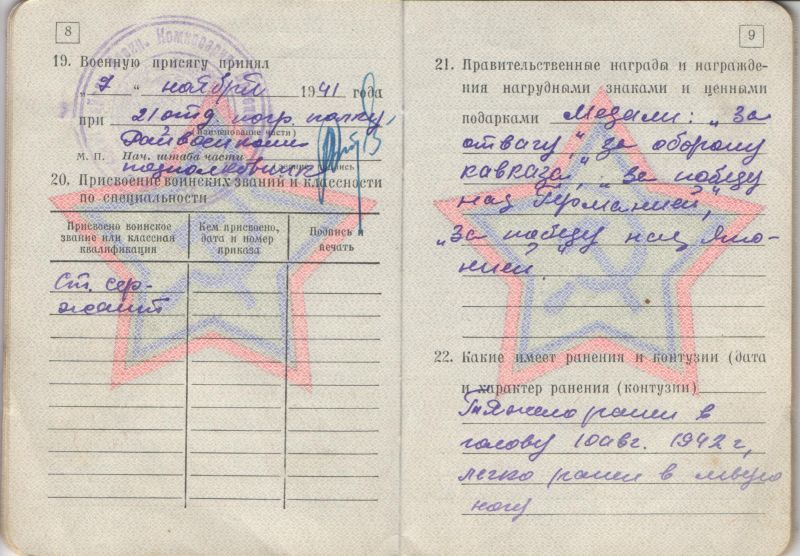 8
19. Военную присягу принял
„ 7 “ ноября 1941 года
при 21 отд. погр. полку,
(наименование части)
Райвоенком
М. П. Нач. штаба части
подполковник
20. Присвоение воинских званий и классности
по специальности
Присвоено воинское
звание или классная
квалификация
Кем присвоено,
дата и номер
приказа
Подпись и
печать
Ст. сер-
жант
9
21. Правительственные награды и награжде-
ния нагрудными знаками и ценными
подарками Медали: „За
отвагу“, „за оборону
кавказа“, „За победу
над Германией“,
„За победу над Япо-
нией“.
22. Какие имеет ранения и контузии (дата
и характер ранения (контузии)
Тяжело ранен в
голову 10 авг. 1942 г,
легко ранен в левую
ногу